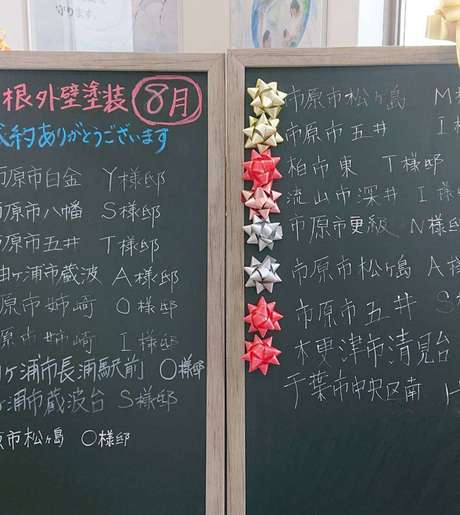 守ります
根外壁塗装 8月
約ありがとうございます
原市白金 Y様邸
原市八幡 S様邸
原市五井 T様邸
ヶ浦市蔵波 A様邸
原市姉崎 O様邸
原市姉崎 I様邸
ヶ浦市長浦駅前 O様邸
ヶ浦市蔵波台 S様邸
原市松ヶ島 O様邸
市原市松ヶ島 M様
市原市五井 I様
柏市東 T様邸
流山市深井 I様邸
市原市更級 N様邸
市原市松ヶ島 A様
市原市五井 S
木更津市清見台
千葉市中央区南 H